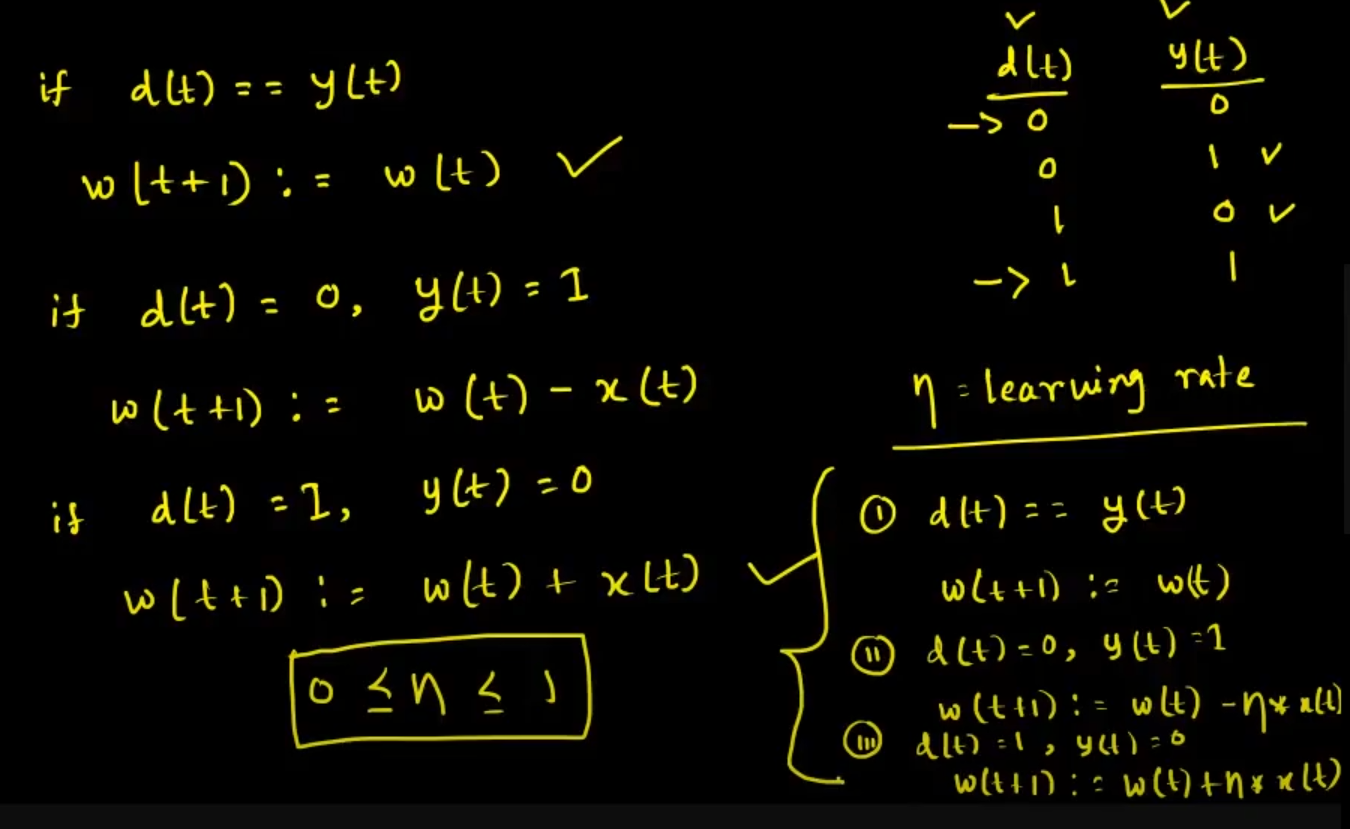 if d(t) == y(t)
w(t+1) := w(t) ✓
if d(t) = 0, y(t) = 1
w(t+1) := w(t) - x(t)
if d(t) = 1, y(t) = 0
w(t+1) := w(t) + x(t)
0 ≤ η ≤ 1
✓ ✓
d(t) y(t)
-> 0 0
0 1 ✓
1 0 ✓
-> 1 1
η = learning rate
✓
(i) d(t) == y(t)
w(t+1) := w(t)
(ii) d(t) = 0, y(t) = 1
w(t+1) := w(t) - η * x(t)
(iii) d(t) = 1, y(t) = 0
w(t+1) := w(t) + η * x(t)